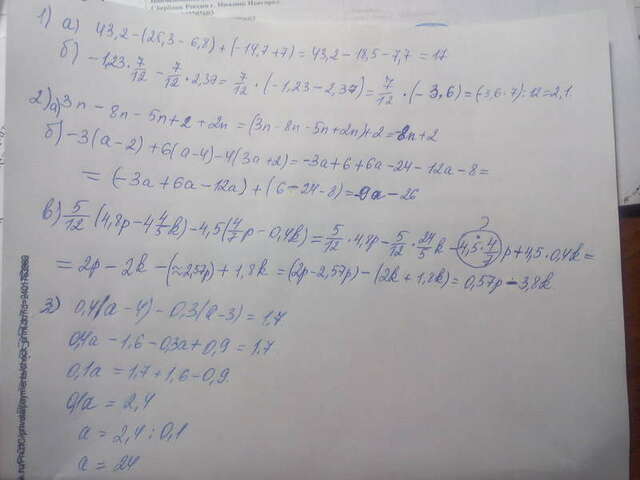 Сбербанк России г. Нижний Новгород
1) а) 43,2-(25,3-6,8)+(-14,7+7)=43,2-18,5-7,7=17
б) -1,23·7/12-7/12·2,37=7/12·(-1,23-2,37)=7/12·(-3,6)=(-3,6·7):12=2,1.
2) а) 3n-8n-5n+2+2n=(3n-8n-5n+2n)+2=-8n+2
б) -3(a-2)+6(a-4)-4(3a+2)=-3a+6+6a-24-12a-8=
=(-3a+6a-12a)+(6-24-8)=-9a-26
?
в) 5/12(4,8p-4 4/5k)-4,5(4/7p-0,4k)=5/12·4,8p-5/12·24/5k-4,5·4/7p+4,5·0,4k=
=2p-2k-(≈2,57p)+1,8k=(2p-2,57p)-(2k+1,8k)=0,57p-3,8k
3) 0,4(a-4)-0,3(a-3)=1,7.
0,4a-1,6-0,3a+0,9=1,7
0,1a=1,7+1,6-0,9.
0,1a=2,4
a=2,4:0,1
a=24